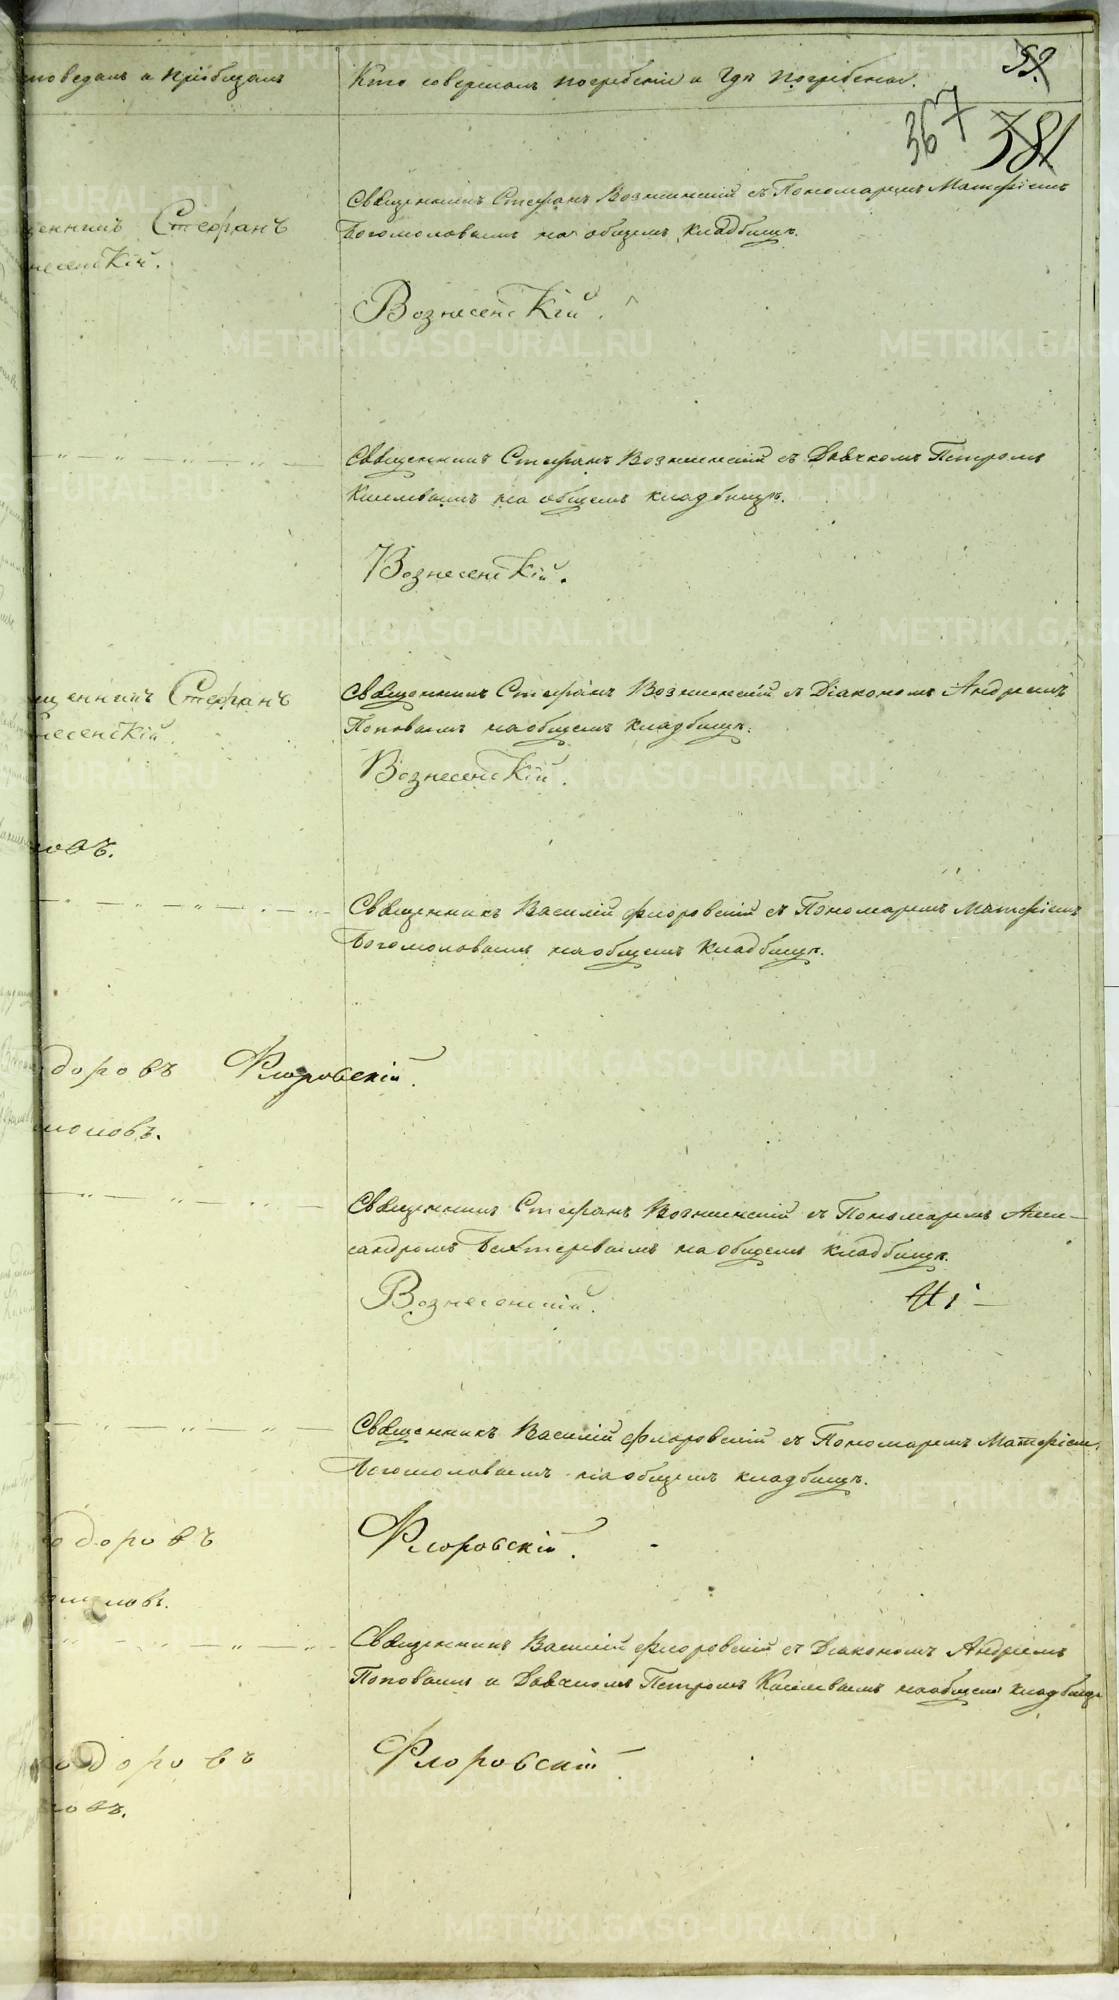 59.
367 381
поведалъ и пріобщалъ
Кто совершалъ погребеніе и гдѣ погребены.
Священникъ Стефанъ Вознесенскій съ Пономаремъ Матфіемъ
Богомоловымъ на общемъ кладбищѣ.
щенникъ Стефанъ
несенскій.
Вознесенскій.
Священникъ Стефанъ Вознесенскій съ Дьячкомъ Петромъ
на общемъ кладбищѣ.
Вознесенскій.
щенникъ Стефанъ
несенскій.
Священникъ Стефанъ Вознесенскій съ Діакономъ Андреемъ
Поповымъ на общемъ кладбищѣ.
Вознесенскій.
новъ.
Священникъ Василій Флоровскій съ Пономаремъ Матфіемъ
Богомоловымъ на общемъ кладбищѣ.
доровъ Флоровскій.
моловъ.
Священникъ Стефанъ Вознесенскій съ Пономаремъ Алек-
сандромъ Бехтеревымъ на общемъ кладбищѣ.
Вознесенскій.
Священникъ Василій Флоровскій съ Пономаремъ Матфіем
Богомоловымъ на общемъ кладбищѣ.
одоровъ
Флоровскій.
моловъ.
Священникъ Василій Флоровскій съ Діакономъ Андреемъ
Поповымъ и Дьячкомъ Петромъ на общемъ кладбищѣ
одоровъ
Флоровскій
ловъ.
METRIKI.GASO-URAL.RU